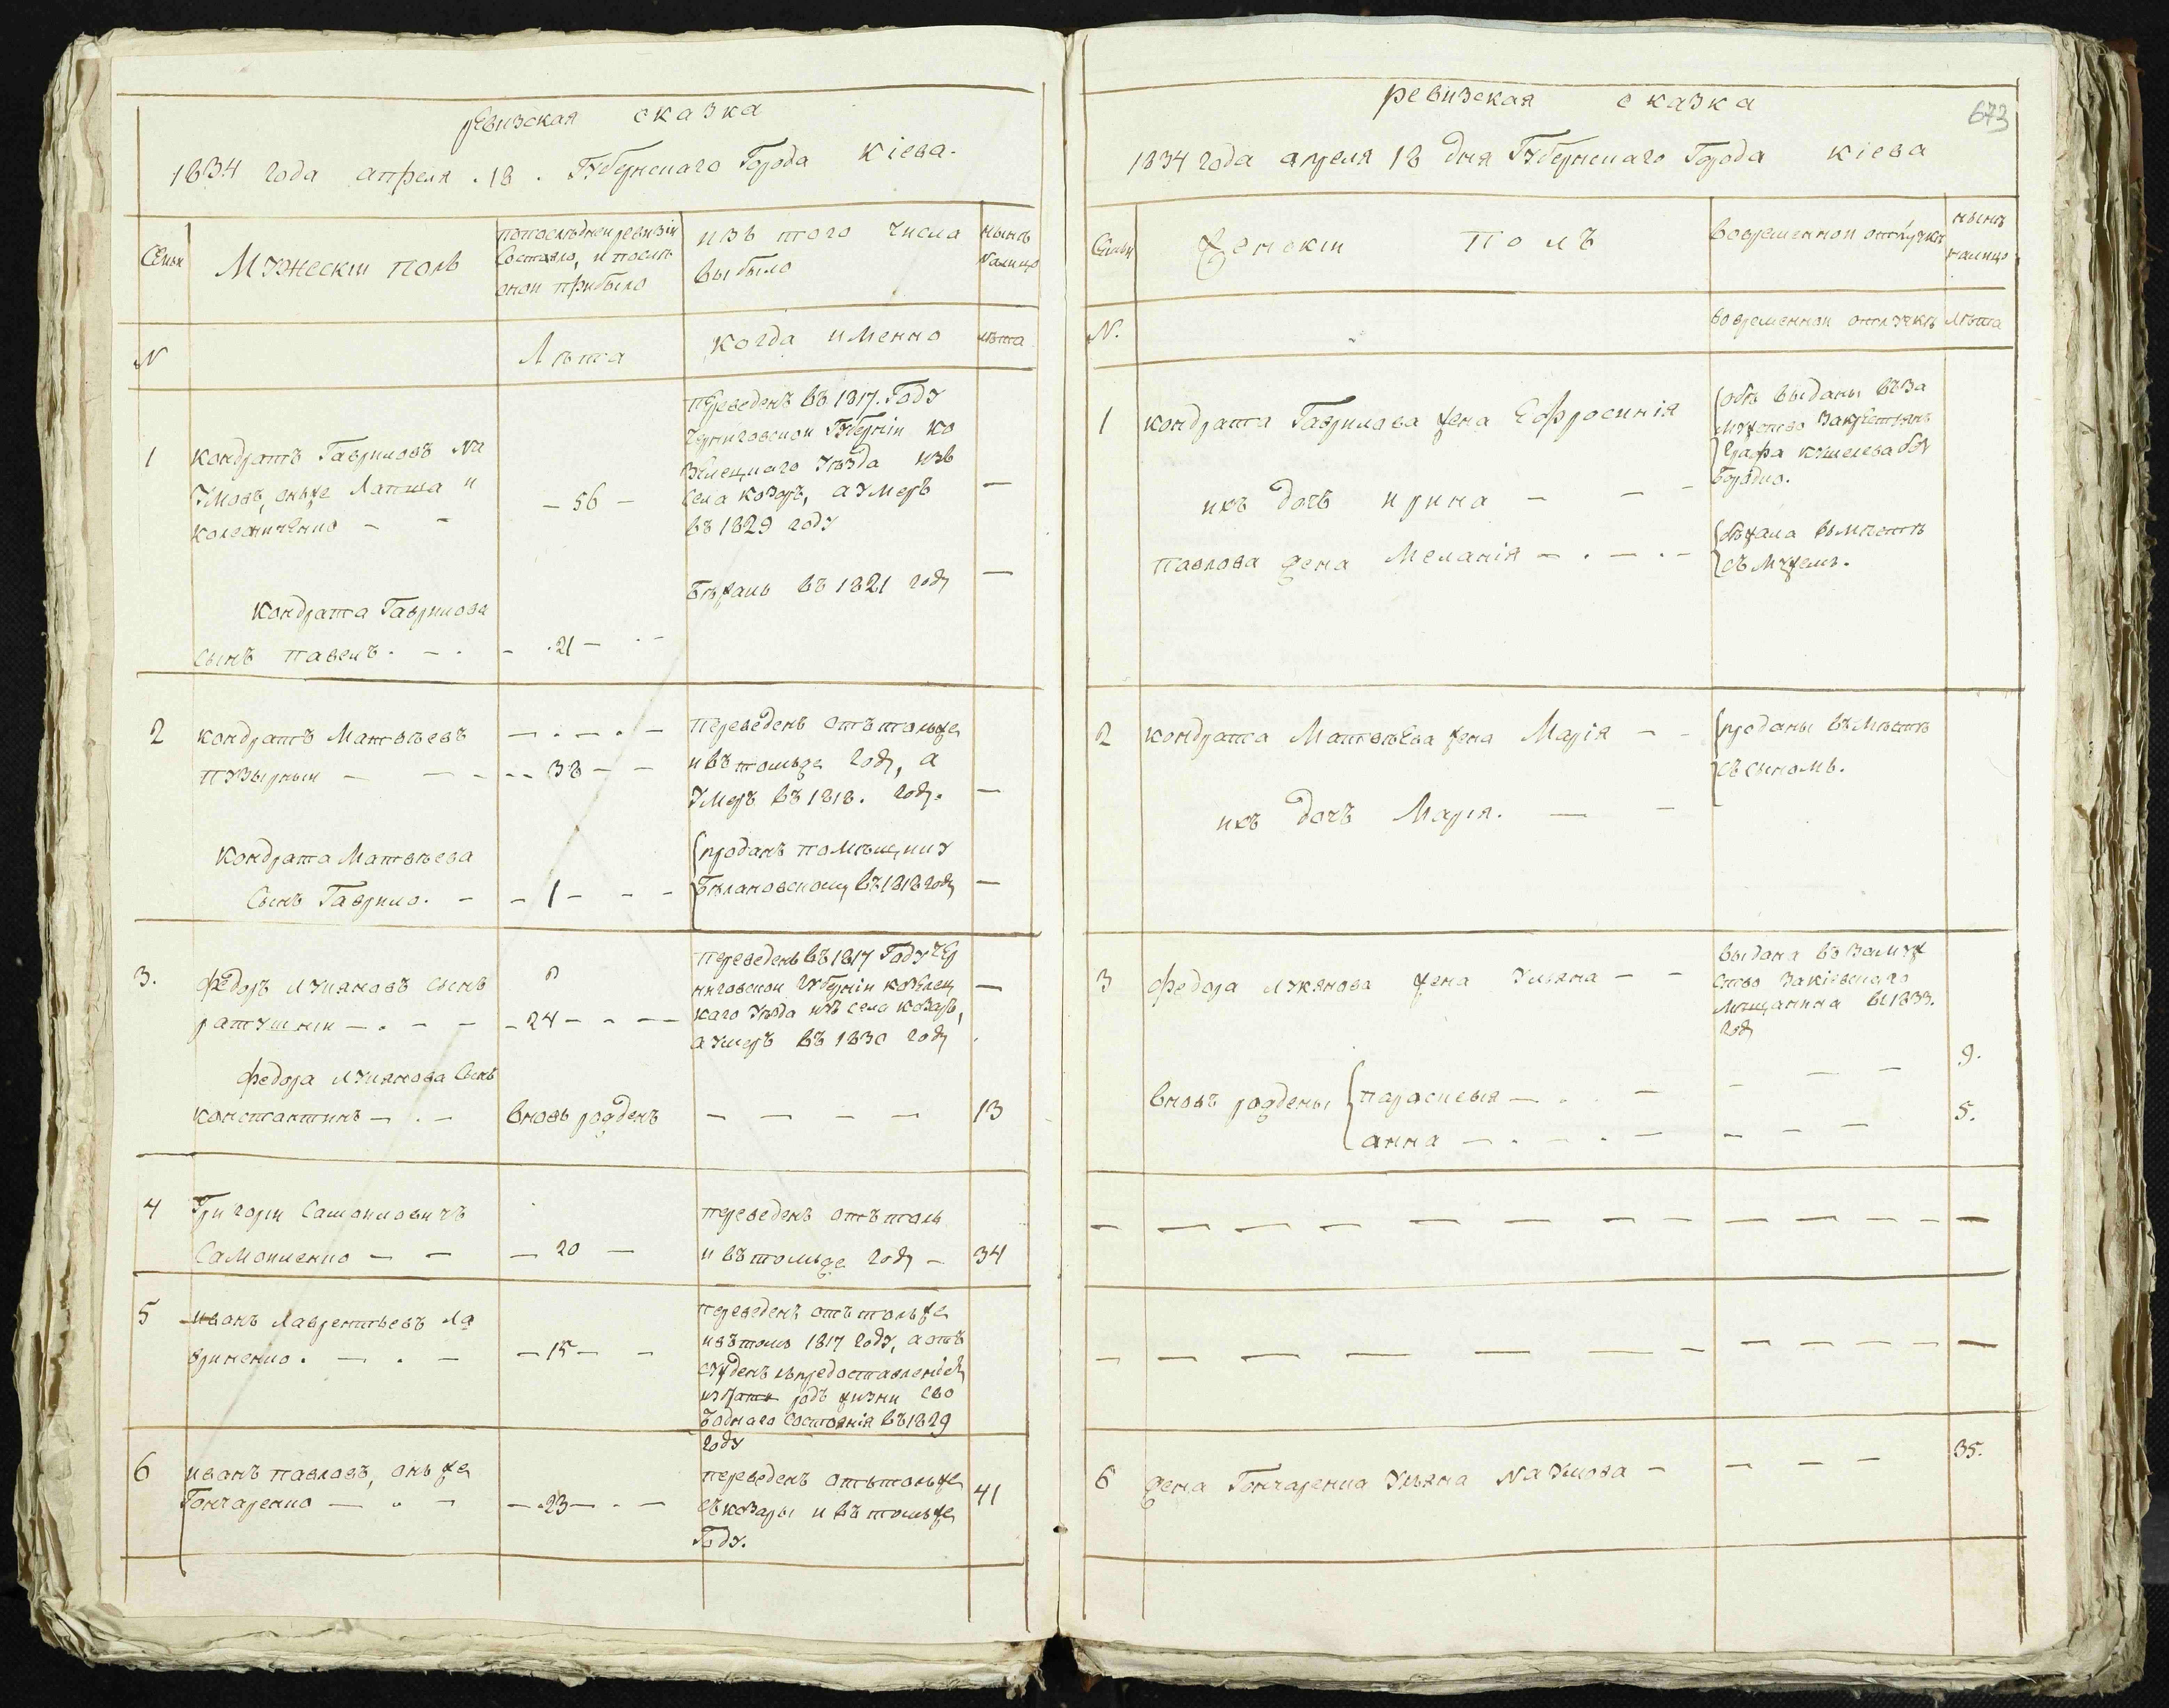 ревизская сказка
1834 года апреля . 18 . Губернскаго Города Кіева.
Семьи
Мужескій полъ
попоследней ревизіи
Состояло, и после
оной прибыло
изъ того числа
выбыло
ныне
налицо
N
Лѣта
когда именно
лѣта
1
кондратъ Гавриловъ На
Умовъ, онъже Лапша и
колесниченко – –
– 56 –
переведенъ въ 1817. Году
Черниговской Губерніи ко
зелецкаго Уѣзда изъ
села козаръ, а Умеръ
въ 1829 году
—
кондрата Гаврилова
сынъ павелъ . – .
– . 21 –
Бѣжалъ въ 1821 году
—
2
кондратъ Матвѣевъ
пузырный – – –
– . – . –
– – 38 – –
переведенъ отътольже
ивъ томъже году, а
Умеръ въ 1818 . году.
—
кондрата Матвѣева
Сынъ Гаврило. –
– 1 – – –
проданъ помѣщику
Бѣлановскому въ 1818 году
—
3.
федоръ лукяновъ сынъ
ратушній – . – –
– 24 – – –
переведенъ въ 1817 Году Чер
ниговской Губерніи козелец
каго Уѣзда изъ села козаръ,
а умеръ въ 1830 году
—
федора лукянова Сынъ
константинъ – . –
вновь рожденъ
– – – –
13
4
Григорій Самойловичъ
Самойленко – –
– 20 –
переведенъ отътоль
и въ томъже году –
34
5
иванъ Лаврентьевъ Ла
вриненко . – . –
– 15 – –
переведенъ отътольже
ивътомъ 1817 году, а отъ
сужденъ съпредоставленіемъ
избрать родъ жизни сво
боднаго состоянія въ 1829
году
6
иванъ павловъ, онъже
Гончаренко – . –
– . 23 – . –
переведенъ отътольже
съкозары и въ томъже
Году.
41
673
ревизская сказка
1834 года апреля 18 дня Губернскаго Города кіева
Семьи
Женскій Полъ
вовременной отлучке
ныне
налицо
N.
вовременной отлучкѣ
лѣта
1
кондрата Гаврилова жена Ефросинія
ихъ дочь ирина – – –
обѣ выданы въ за
мужство закрестьянъ
Графа кушелева без
бородко.
павлова жена Меланія – . – . –
бѣжала вмѣстѣ
съ Мужемъ.
2
кондрата Матвѣева жена Марія – –
ихъ дочь Марія. – –
проданы въмѣстѣ
съ сыномъ.
3
федора лукянова жена Ульяна – –
выдана въ замуж
ство закіевскаго
мещанина въ 1833.
году
вновь рождены
параскевія – . . – – – –
9.
анна – . – . – – – –
5.
– – – – – – – – – – – – –
– – – – – – – – – – – – –
6
жена Гончаренка Ульяна Наумова – – – –
35.